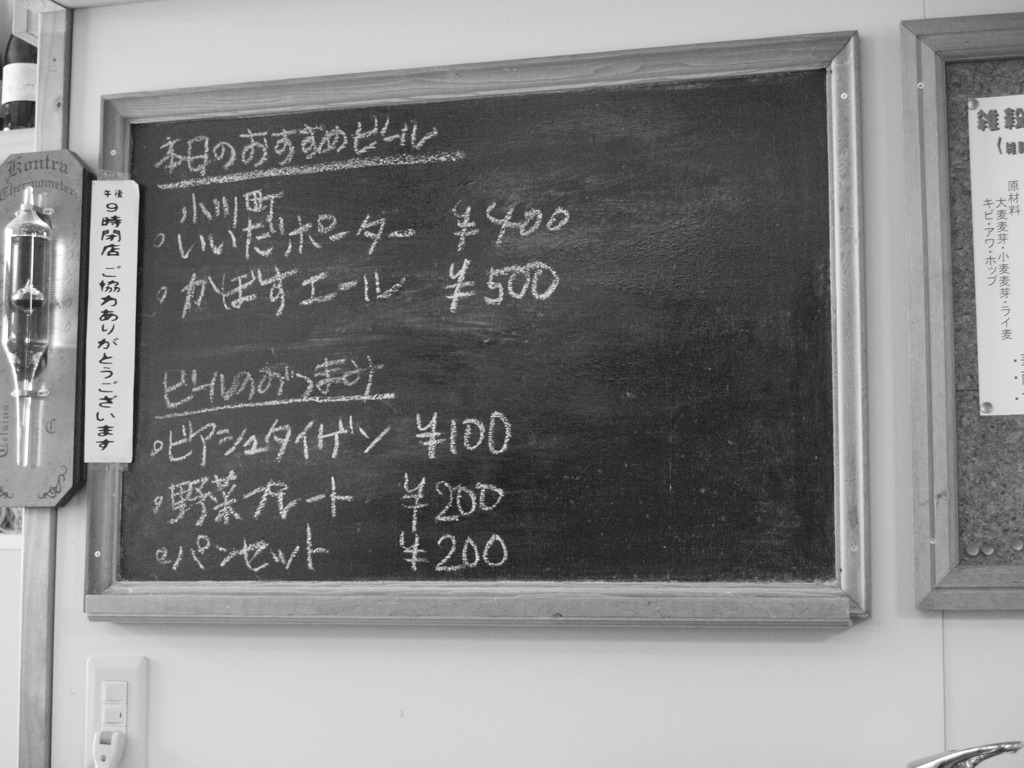 本日のおすすめビール
小川町
・いいだポーター ¥400
・かぼすエール ¥500
ビールのおつまみ
・ビアシュタイゲン ¥100
・野菜プレート ¥200
・パンセット ¥200
午後9時閉店 ご協力ありがとうございます
Kontra
Thermometer
Celsius
C
雑穀
(雑穀
原材料
大麦麦芽・小麦麦芽・ライ麦
キビ・アワ・ホップ